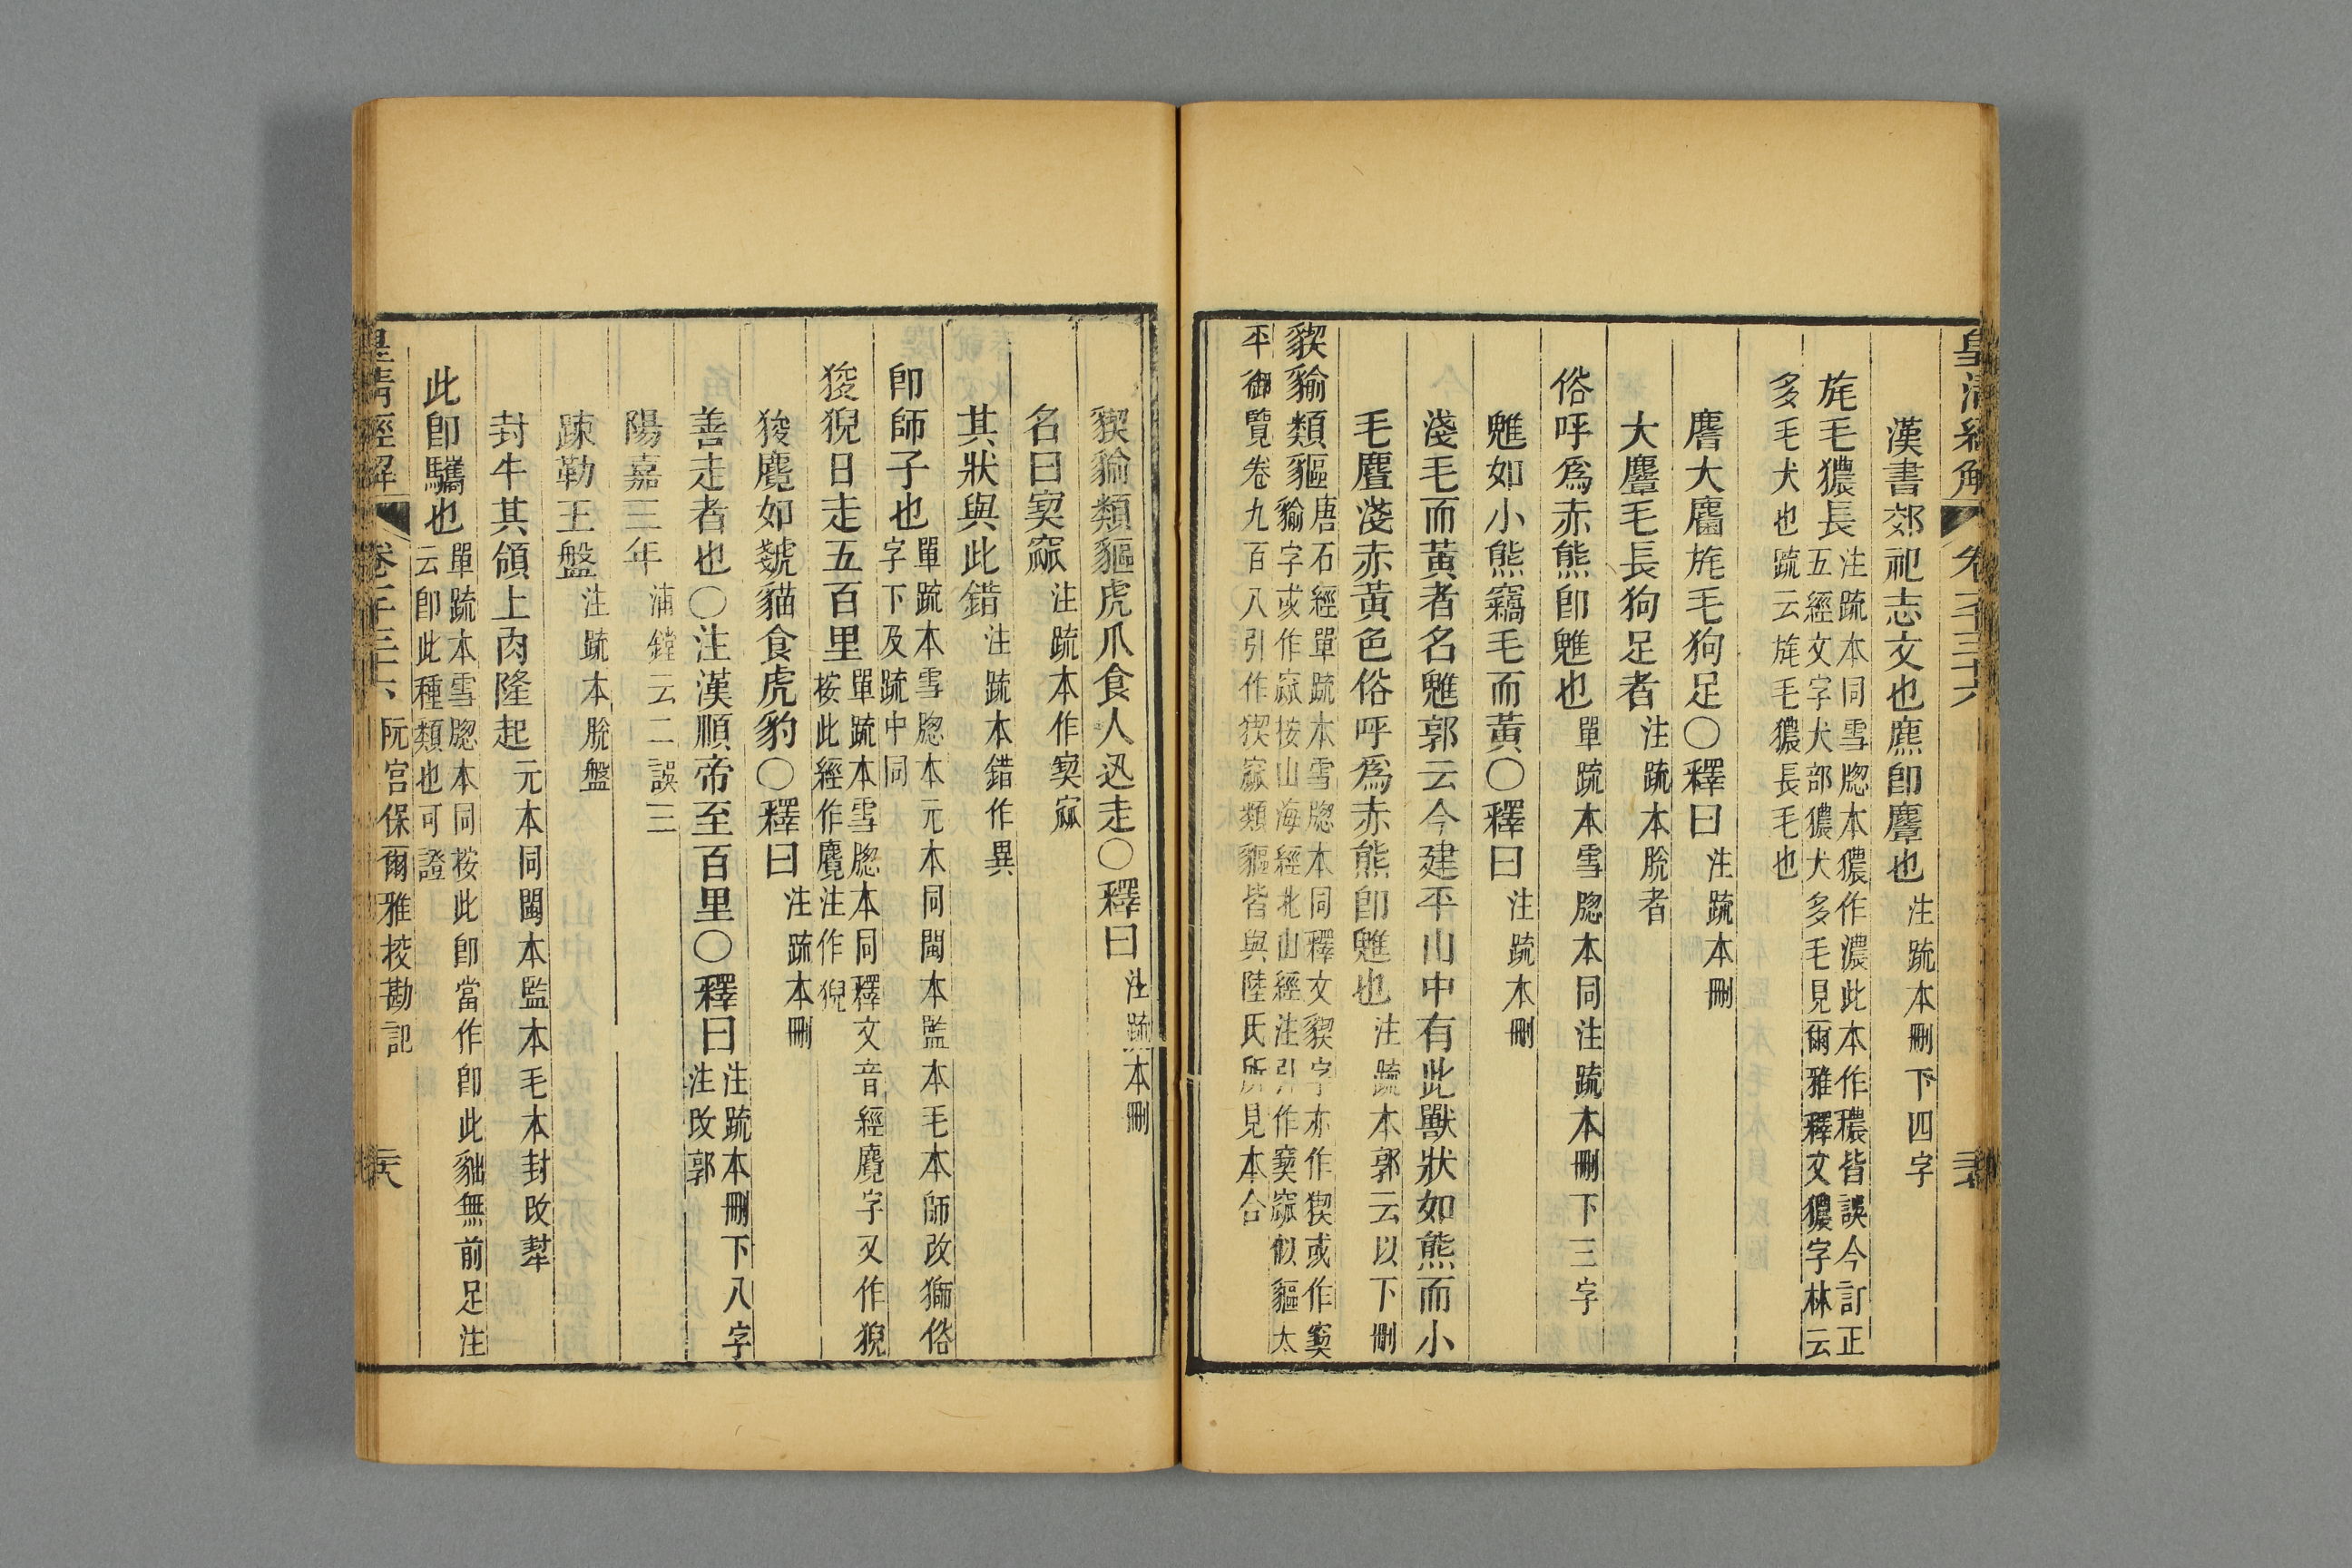 皇清經解 卷一千三十六
漢書郊祀志文也麃卽麞也 注䟽本刪下四字
旄毛㺜長 注䟽本同雪牕本㺜作濃此本作穠皆誤今訂正
五經文字犬部㺜犬多毛見爾雅釋文㺜字林云
多毛犬也䟽云旄毛㺜長毛也
麔大麕旄毛狗足〇釋曰 注䟽本刪
大麞毛長狗足者 注䟽本脫者
俗呼爲赤熊卽魋也 單䟽本雪牕本同注䟽本刪下三字
魋如小熊竊毛而黃〇釋曰 注䟽本刪
淺毛而黃者名魋郭云今建平山中有此獸狀如熊而小
毛麆淺赤黃色俗呼爲赤熊卽魋也 注䟽本郭云以下刪
貏貐類貙 唐石經單䟽本雪牕本同釋文貏字亦作猰或作窫
貐字或作窳按山海經北山經注引作窫窳似貙太
平御覽卷九百八引作猰窳類貙皆與陸氏所見本合
猰貐類貙虎爪食人迅走〇釋曰 注䟽本刪
名曰窫窳 注䟽本作窫窳
其狀與此錯 注䟽本錯作異
卽師子也 單䟽本雪牕本元本同閩本監本毛本師改獅俗
字下及䟽中同
狻猊日走五百里 單䟽本雪牕本同釋文音經麑字又作猊
按此經作麑注作猊
狻麑如虦貓食虎豹〇釋曰 注䟽本刪
善走者也〇注漢順帝至百里〇釋曰 注䟽本刪下八字
注改郭
陽嘉三年 浦鏜云二誤三
踈勒王盤 注䟽本脫盤
封牛其領上肉隆起 元本同閩本監本毛本封改犎
此卽驨也 單䟽本雪牕本同按此卽當作卽此貀無前足注
云卽此種類也可證
皇清經解 卷一千三十六 阮宮保爾雅挍勘記 天